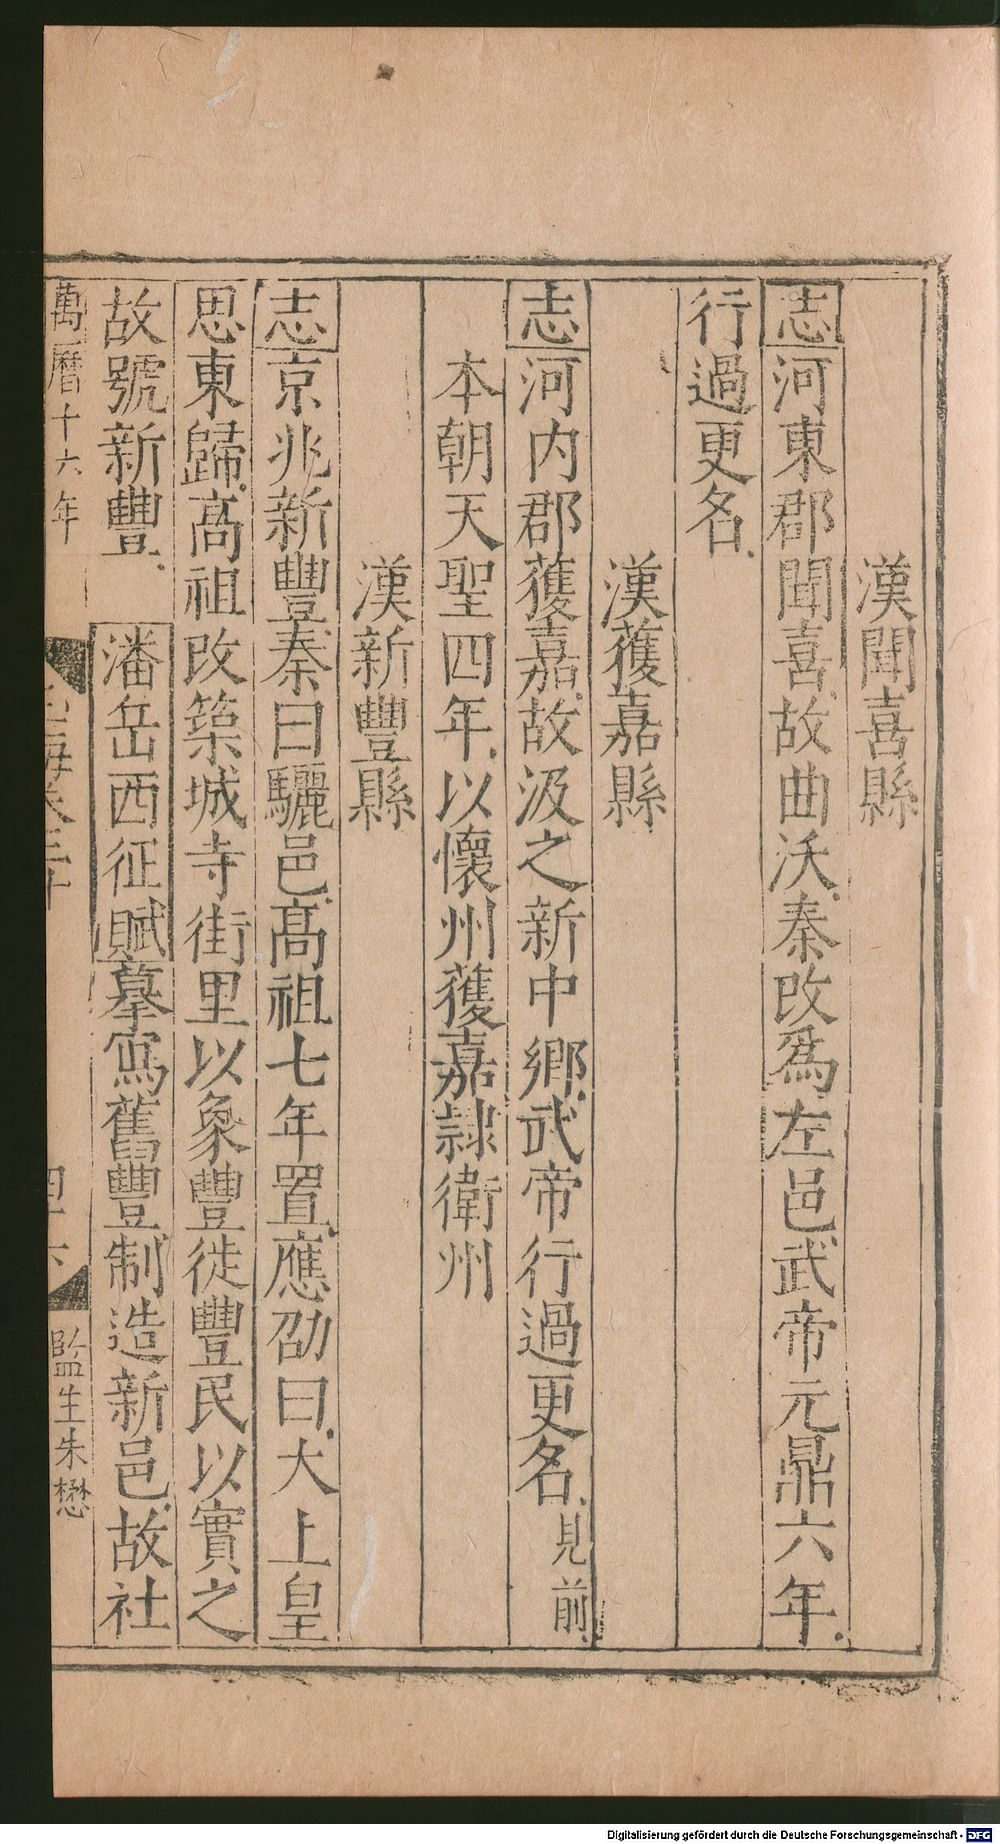 漢聞喜縣
志河東郡聞喜故曲沃秦改爲左邑武帝元鼎六年
行過更名
漢獲嘉縣
志河内郡獲嘉故汲之新中鄉武帝行過更名見前
本朝天聖四年以懷州獲嘉隷衛州
漢新豐縣
志京兆新豐秦曰驪邑高祖七年置應劭曰大上皇
思東歸高祖改築城寺街里以象豐徙豐民以實之
故號新豐 潘岳西征賦摹寫舊豐制造新邑故社
萬曆十六年 卷二十 四十六 監生朱懋
Digitalisierung gefördert durch die Deutsche Forschungsgemeinschaft - DFG